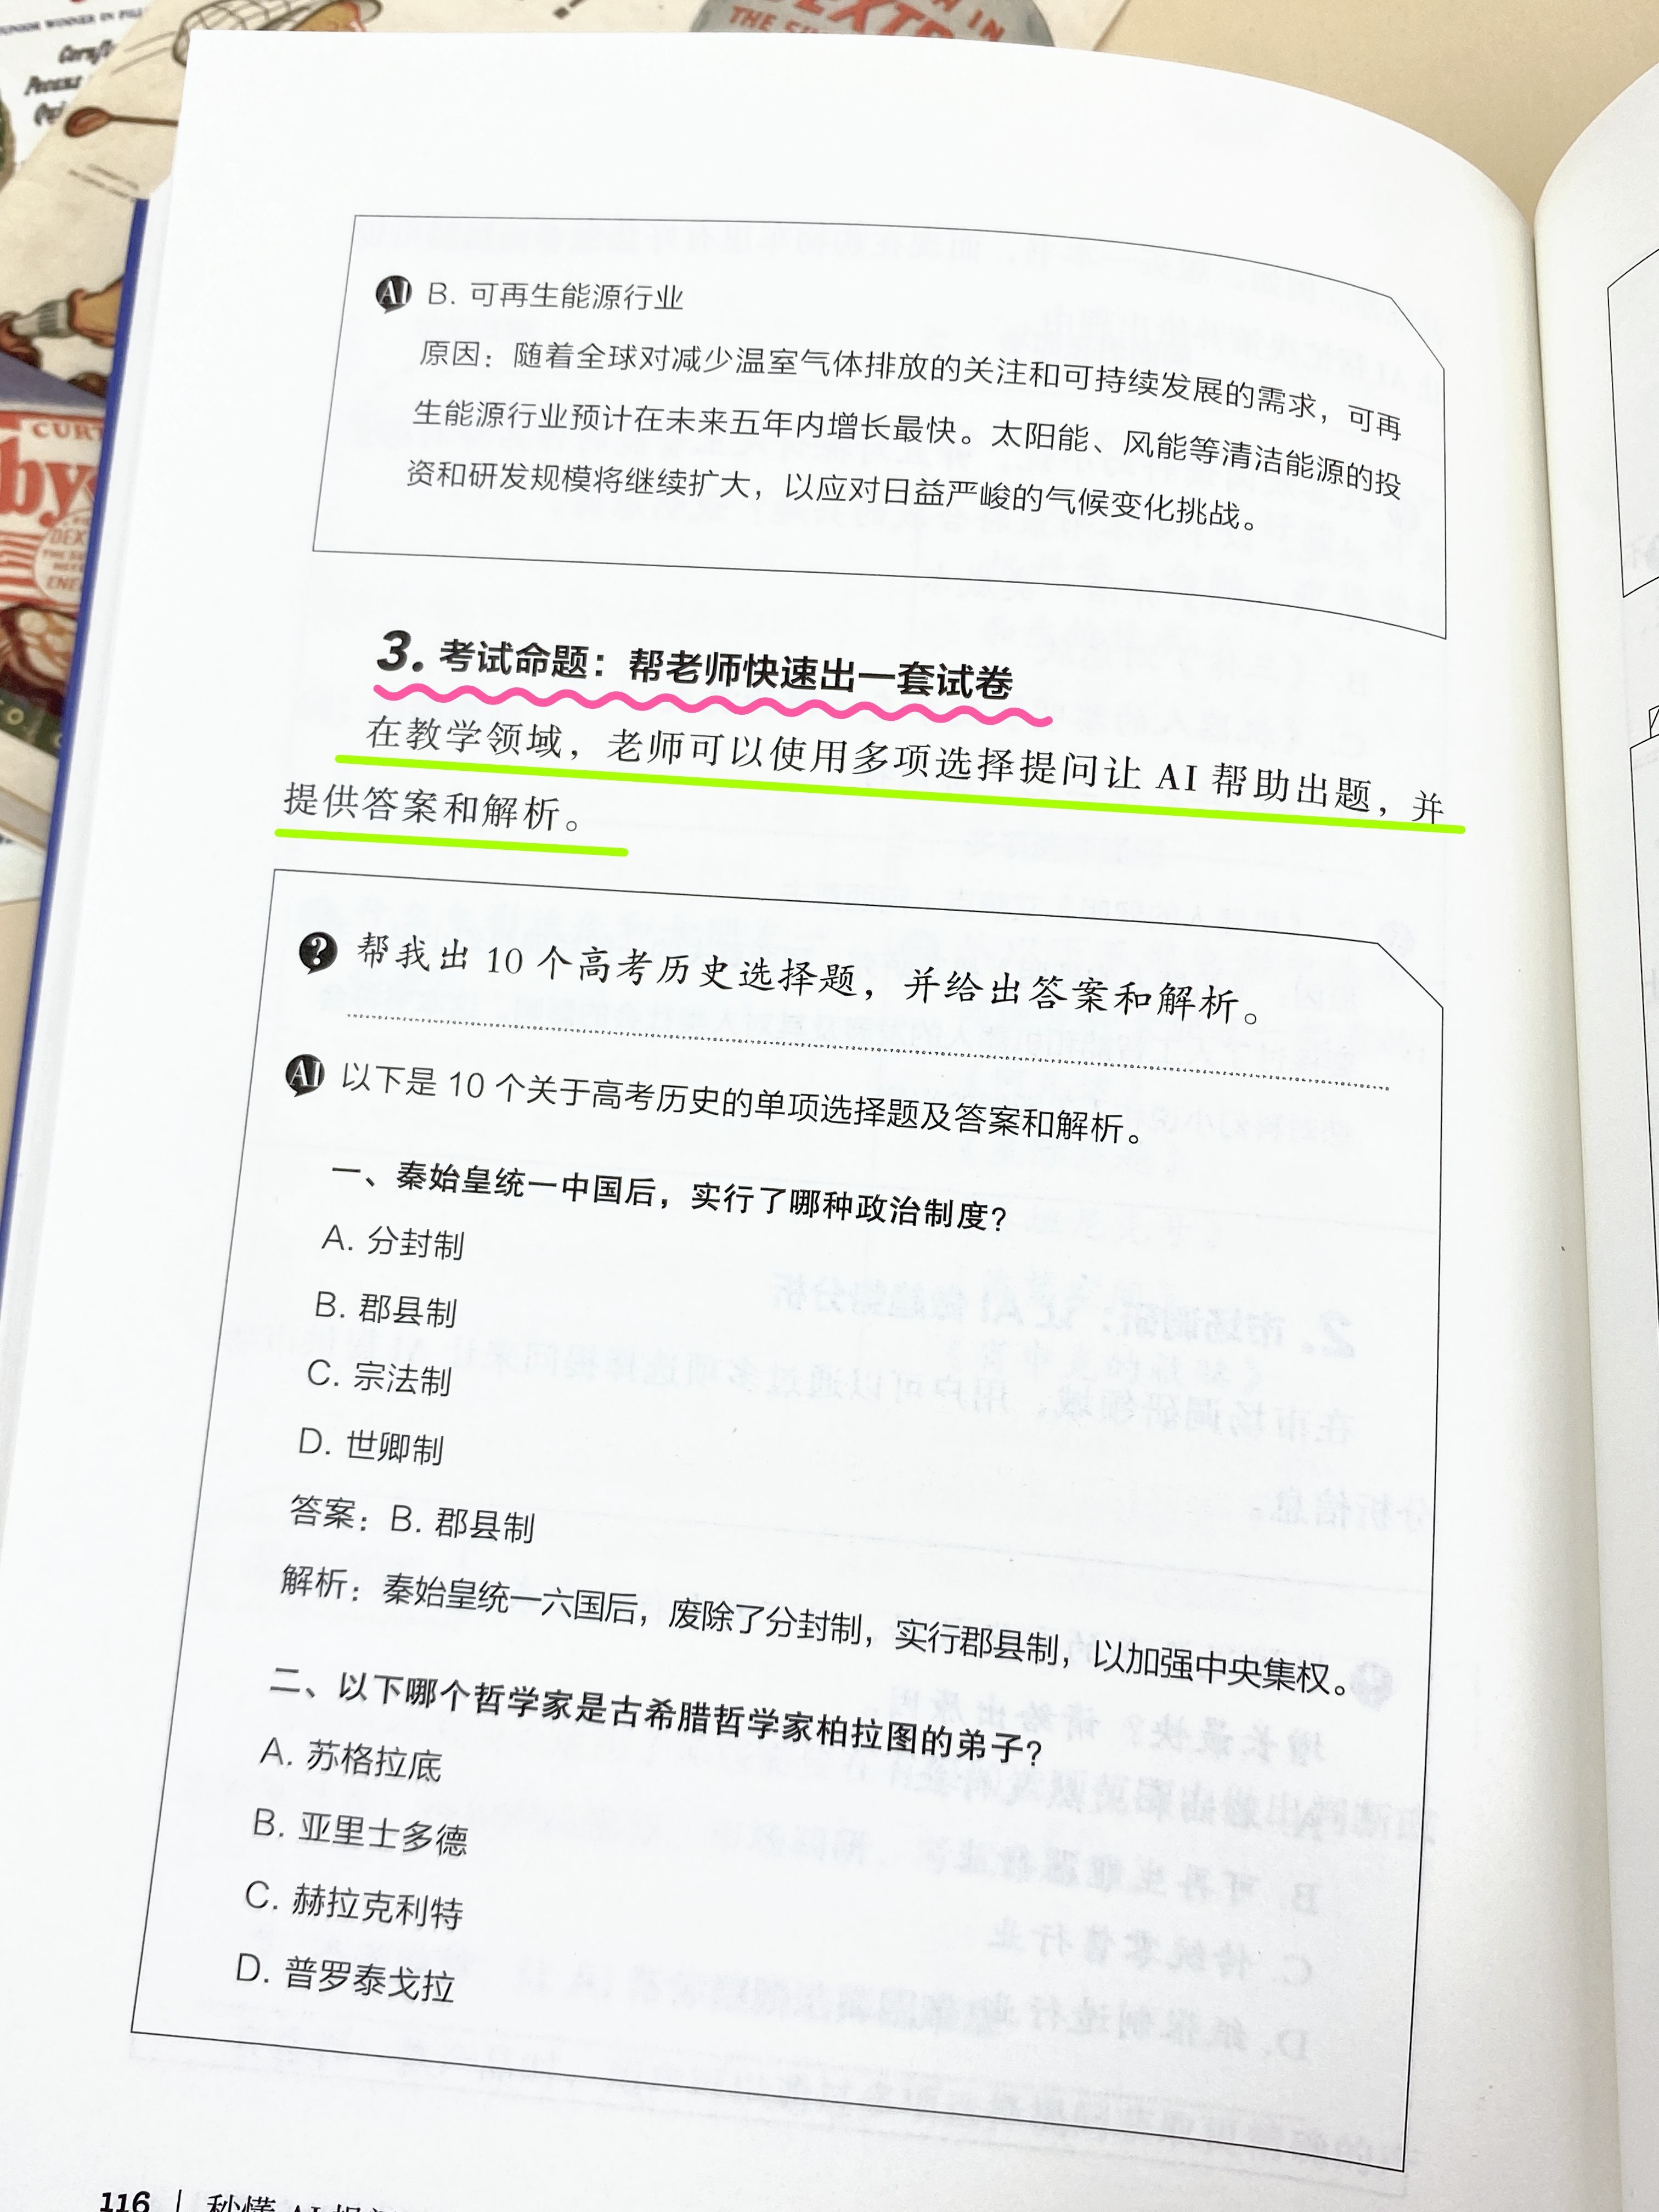 B. 可再生能源行业
原因：随着全球对减少温室气体排放的关注和可持续发展的需求，可再
生能源行业预计在未来五年内增长最快。太阳能、风能等清洁能源的投
资和研发规模将继续扩大，以应对日益严峻的气候变化挑战。
3. 考试命题：帮老师快速出一套试卷
在教学领域，老师可以使用多项选择提问让 AI 帮助出题，并
提供答案和解析。
? 帮我出 10 个高考历史选择题，并给出答案和解析。
AI 以下是 10 个关于高考历史的单项选择题及答案和解析。
一、秦始皇统一中国后，实行了哪种政治制度？
A. 分封制
B. 郡县制
C. 宗法制
D. 世卿制
答案：B. 郡县制
解析：秦始皇统一六国后，废除了分封制，实行郡县制，以加强中央集权。
二、以下哪个哲学家是古希腊哲学家柏拉图的弟子？
A. 苏格拉底
B. 亚里士多德
C. 赫拉克利特
D. 普罗泰戈拉
116 | 秒懂 AI